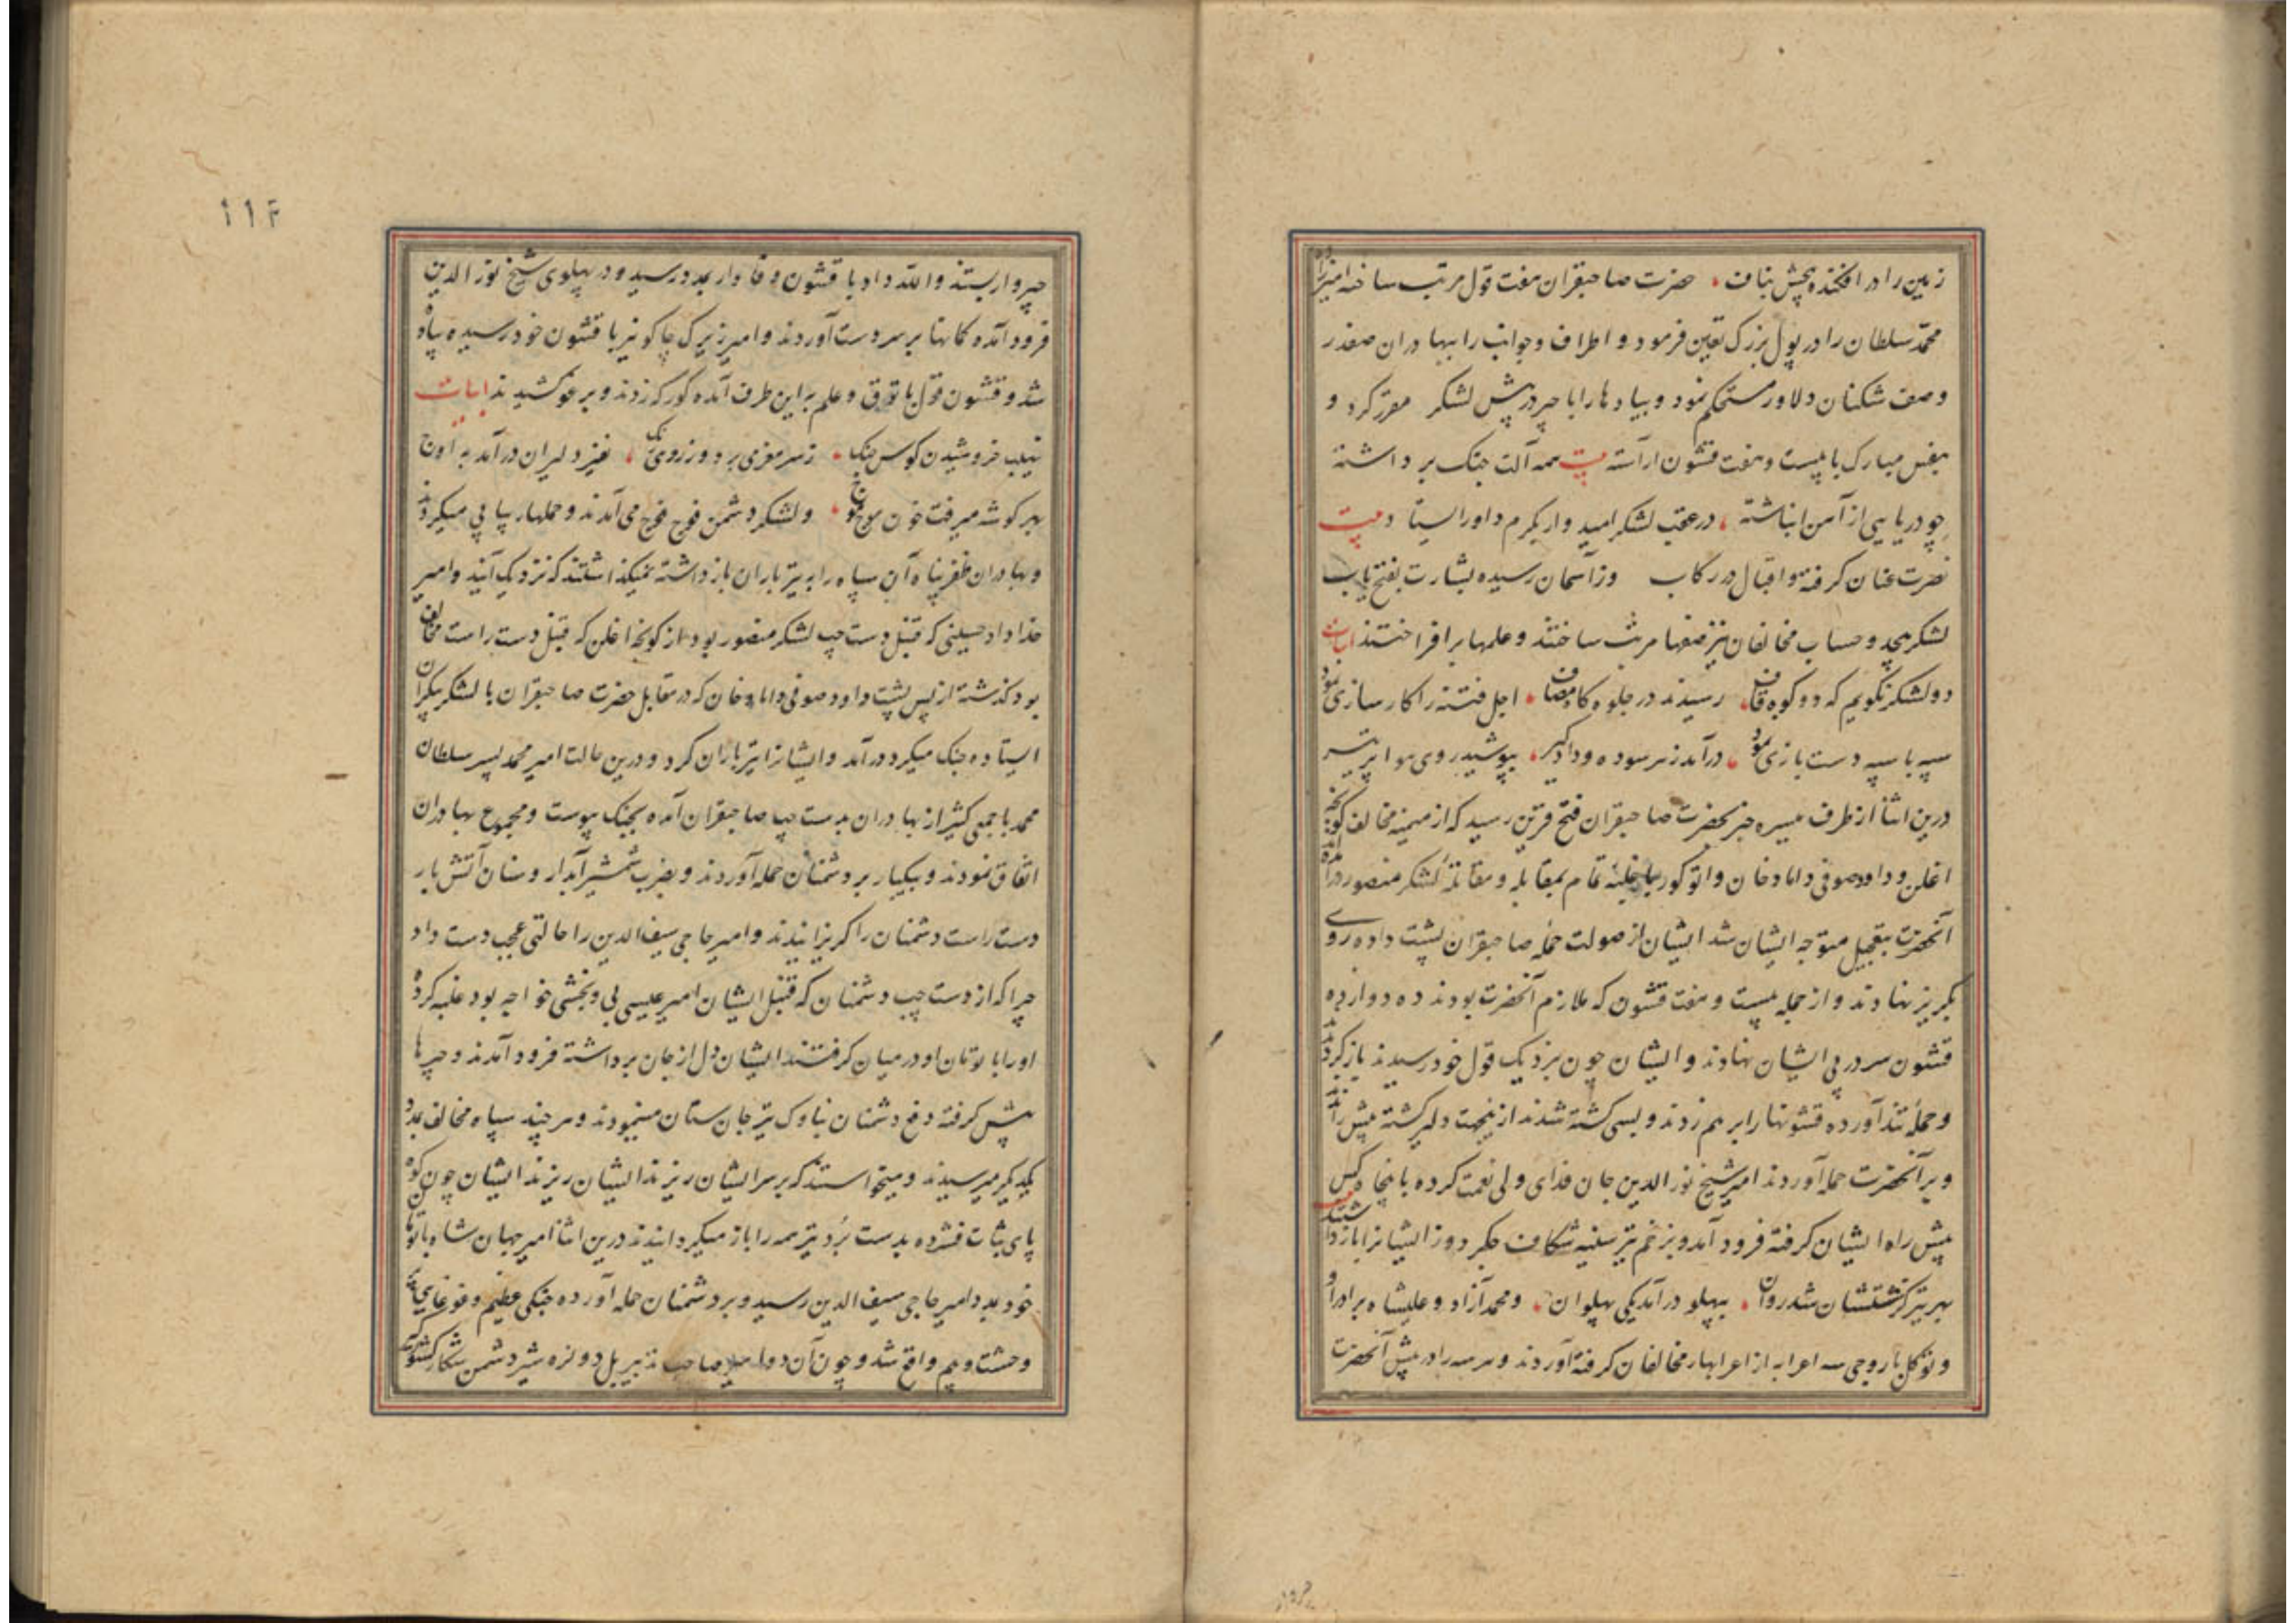 زمین را در افکنده بچش بناف حضرت صاحبقران هفت قول مرتب ساخته امیرزاده
محمد سلطان را در پول بزرگ تعین فرمود و اطراف و جوانب را ببهادران صفدر
وصف شکنان دلاور مستحکم نمود و پیادها را با چپر در پیش لشکر مقرر کرد و
بنفس مبارک با بیست و هفت قشون آراسته بیت همه آلت جنک برداشته
چو دریایی از آهن انباشته در عقب لشکر امیدوار بکرم داور ایستاد بیت
نصرت عنان کرفته و اقبال در رکاب وز آسمان رسیده بشارت بفتح باب
لشکر بیحد و حساب مخالفان نیز صفها مرتب ساختند و علمها برافراختند ابیات
دو لشکر نگویم که دو کوه قاف رسیدند در جلوه کاه مصاف اجل فتنه را کارسازی نمود
سپه با سپه دست بازی نمود درآمد ز هر سو ده و دار و گیر بپوشید روی هوا پر تیر
درین اثنا از طرف میسره خبر بحضرت صاحبقران فتح قرین رسید که از میمنه مخالف کونجه
اغلن و داود صوفی داماد خان و اتوکور با غلبه تمام بمقابله و مقاتله لشکر منصور درآمدند
آنحضرت بتعجیل متوجه ایشان شد ایشان از صولت حمله صاحبقران پشت داده روی
بکریز نهادند و از جمله بیست و هفت قشون که ملازم آنحضرت بودند ده دوازده
قشون سر در پی ایشان نهادند و ایشان چون بنزدیک قول خود رسیدند بازگردیدند
و حمله تند آورده قشونها را برهم زدند و بسی کشته شدند ازینجهت دلیر کشته پیش راندند
و بر آنحضرت حمله آوردند امیر شیخ نورالدین جان فدای ولی نعمت کرده با پنجاه کس
پیش راه ایشان کرفته فرود آمد و بزخم تیر سینه شکاف جکر دوز ایشانرا بازداشتند بیت
بهر تیر کز شستشان شد روان بپهلو درآمد یکی پهلوان و محمد آزاد و علیشاه برادر او
و توکل باروجی سه اعرابه از اعرابهاء مخالفان کرفته آوردند و هر سه را در پیش آنحضرت
۱۱۴
چپروار بستند و الله داد با قشون وفادار بمدد رسید و در پهلوی شیخ نورالدین
فرود آمده کمانها بر سر دست آوردند و امیر زیرک جاکو نیز با قشون خود رسیده پیاده
شد و قشون قول با توق و علم به این طرف آمده کورکه زدند و برغو کشیدند ابیات
نهیب خروشیدن کوس جنک ز سر مغز می برد و ز روی رنک نفیر دلیران درآمد به اوج
بهر کوشه میرفت خون موج موج و لشکر دشمن فوج فوج می آمدند و حملهاء پیاپی میکردند
و بهادران ظفر پناه آن سپاه را به تیرباران بازداشته نمیکذاشتند که نزدیک آیند و امیر
خداداد حسینی که قنبل دست چپ لشکر منصور بود از کونجه اغلن که قنبل دست راست مخالف
بود کذشته از پس پشت داود صوفی داماد خان که در مقابل حضرت صاحبقران با لشکر بیکران
ایستاده جنک میکرد درآمد و ایشانرا تیرباران کرد و درین حالت امیر محمد پسر سلطان
محمد با جمعی کثیر از بهادران بدست چپ صاحبقران آمده بجنک پیوست و مجموع بهادران
اتفاق نمودند و بیکبار بر دشمنان حمله آوردند و بضرب شمشیر آبدار و سنان آتش بار
دست راست دشمنان را کریزانیدند و امیر حاجی سیف الدین را حالتی عجب دست داد
چرا که از دست چپ دشمنان که قنبل ایشان امیر عیسی بی و بخشی خواجه بود غلبه کرده
او را با تومان او در میان کرفتند ایشان دل از جان برداشته فرود آمدند و چپرها
پیش کرفته دفع دشمنان بناوک تیز جان ستان مینمودند و هر چند سپاه مخالف بمدد
یکدیکر میرسیدند و میخواستند که بر سر ایشان ریزند ایشان ریزند ایشان چون کوه
پای ثبات فشرده بدست برد تیر همه را باز میکردانیدند درین اثنا امیر جهان شاه با تومان
خود بمدد امیر حاجی سیف الدین رسید و بر دشمنان حمله آورده جنکی عظیم و غوغایی با
وحشت و بیم واقع شد و چون آن دو صاحب تدبیر پیل دو نره شیر دشمن شکار کشورکیر